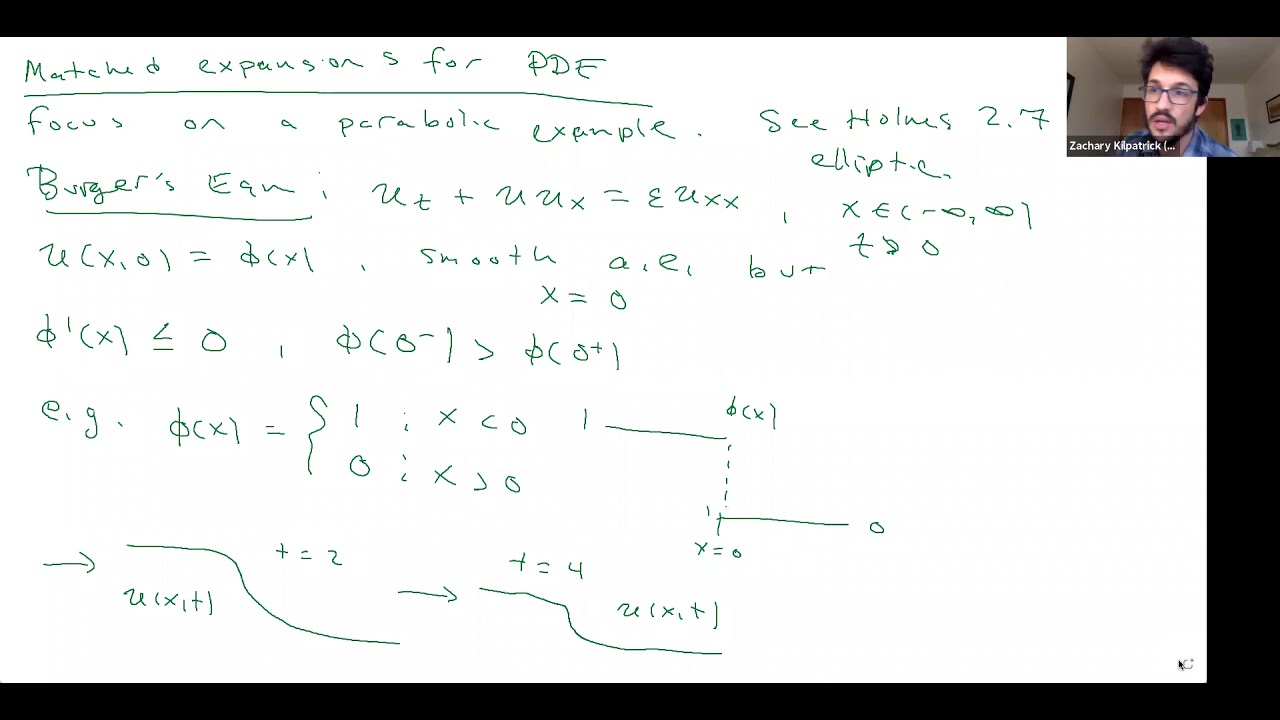 Matched expansions for PDE
focus on a parabolic example. See Holmes 2.7
elliptic.
Burger's Eqn : u_t + u u_x = ε u_xx , x ∈ (-∞, ∞)
t > 0
u(x,0) = ϕ(x) , smooth a.e. but
x = 0
ϕ'(x) ≤ 0 , ϕ(0⁻) > ϕ(0⁺)
e.g. ϕ(x) = { 1 ; x < 0
0 ; x > 0
1 ϕ(x)
0
x = 0
→ u(x,t) t = 2
→ t = 4 u(x,t)
Zachary Kilpatrick (...